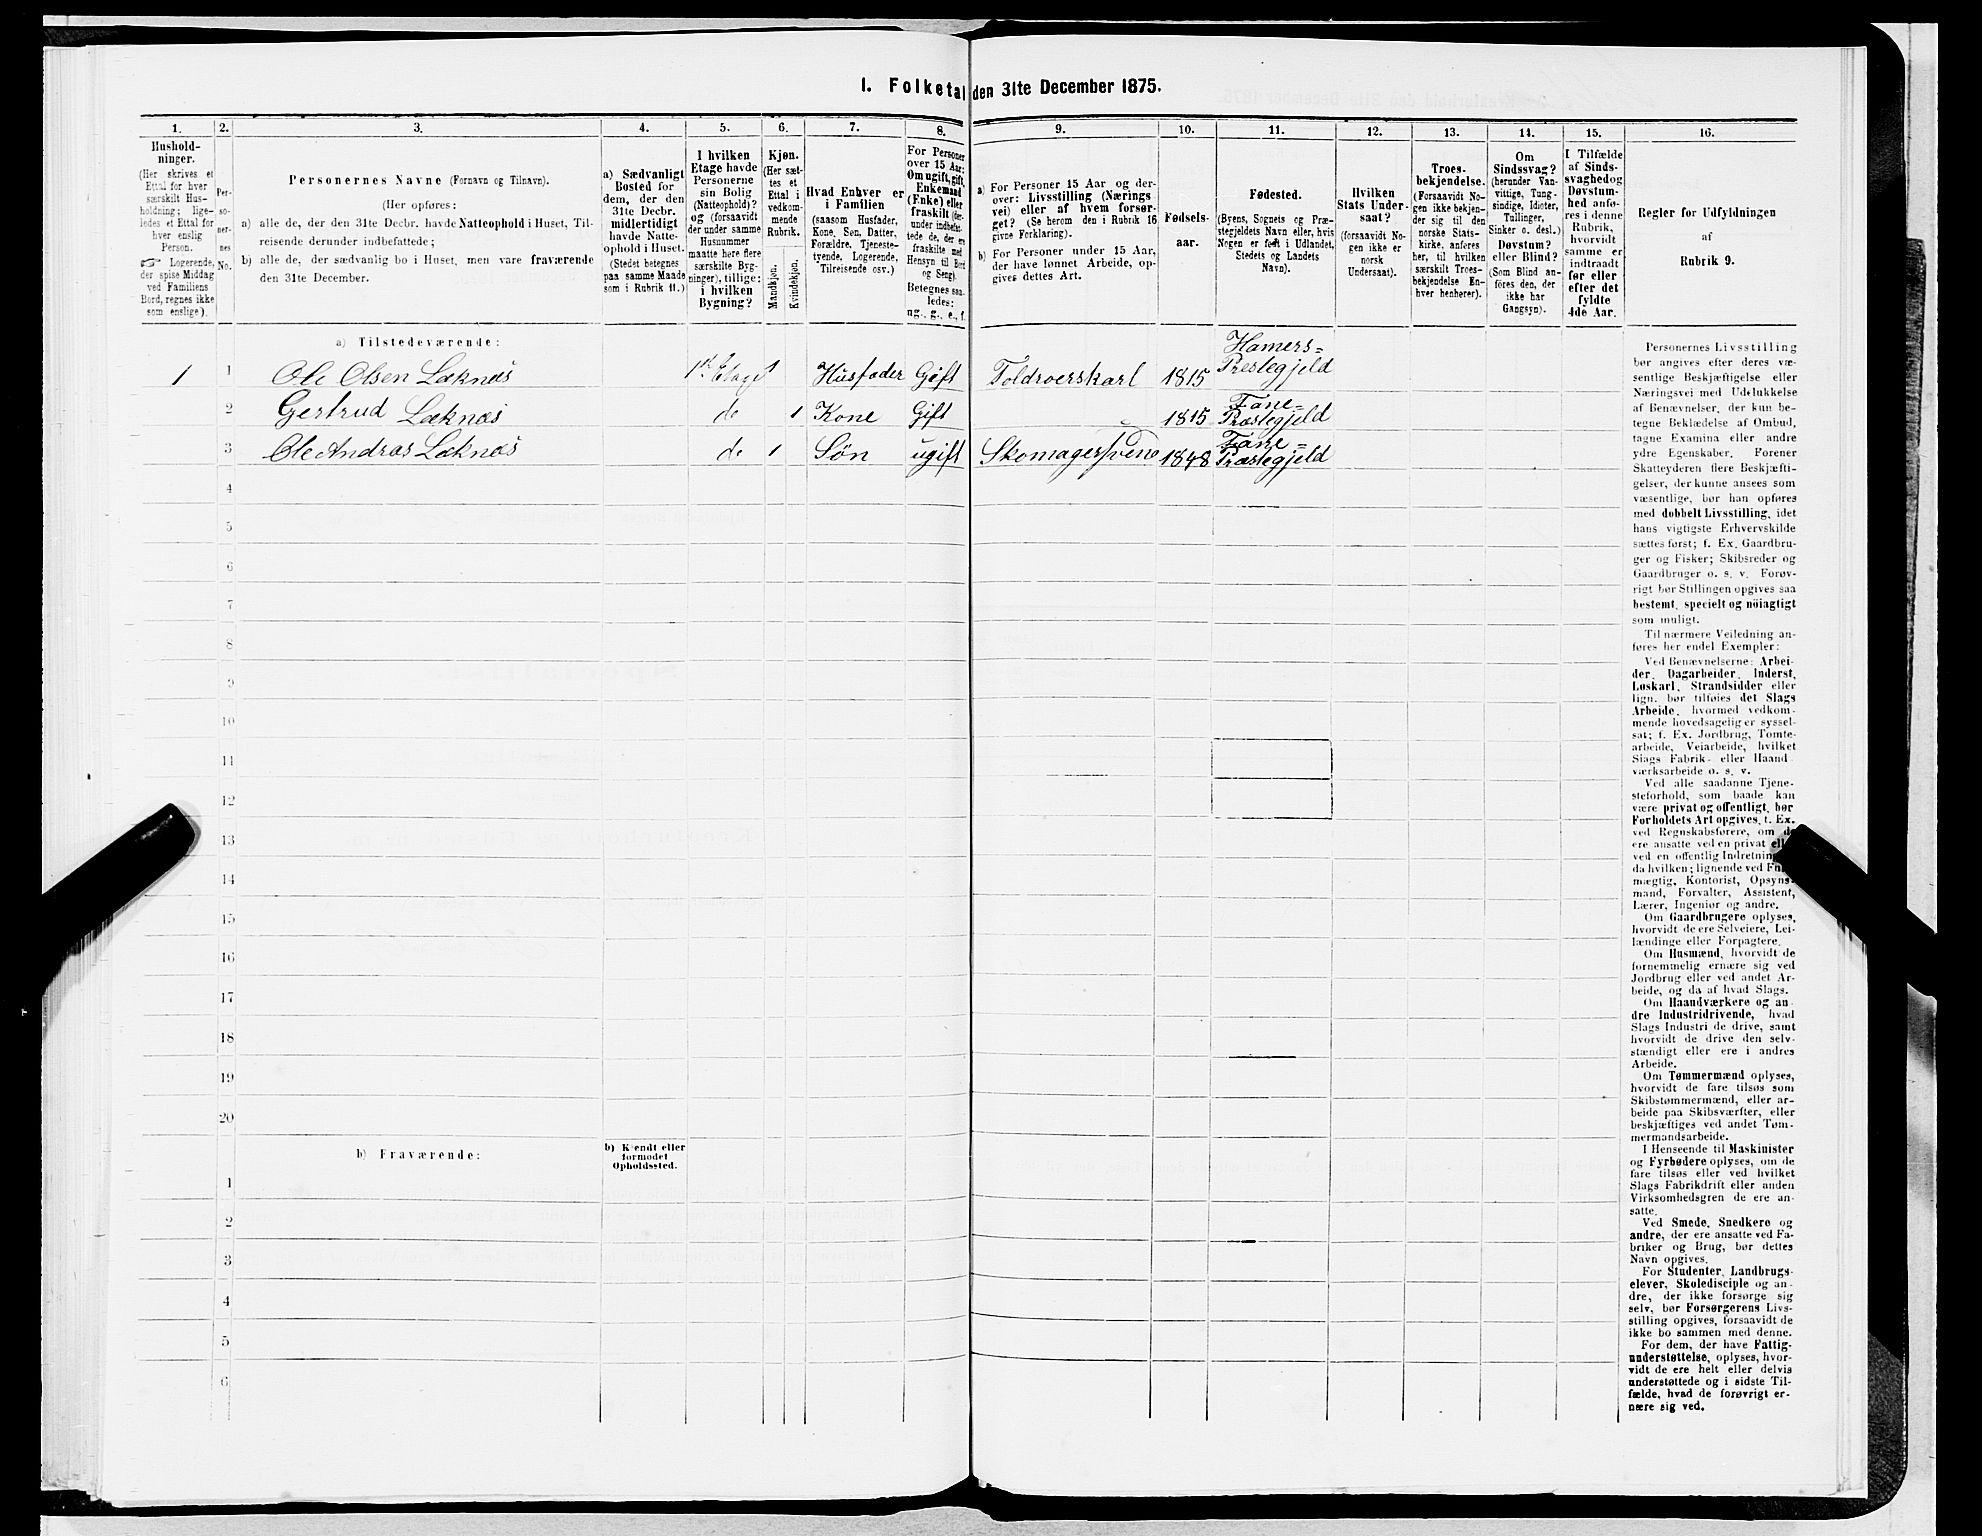 1. Folketal den 31te December 1875.
1. 2. 3. 4. 5. 6. 7. 8. 9. 10. 11. 12. 13. 14. 15. 16.
Hushold-
ninger.
(Her skrives et
Ettal for hver
særskilt Hus-
holdning; lige-
ledes et Ettal for
hver enslig
Person.
☞ Logerende,
der spise Middag
ved Familiens
Bord, regnes ikke
som enslige).
Per-
so-
ner-
nes
No.
Personernes Navne (Fornavn og Tilnavn).
(Her opføres:
a) alle de, der den 31te Decbr. havde Natteophold i Huset, Til-
reisende derunder indbefattede;
b) alle de, der sædvanlig bo i Huset, men vare fraværende
den 31te December.
a) Sædvanligt
Bosted for
dem, der den
31te Decbr.
midlertidigt
havde Natte-
ophold i Huset.
(Stedet betegnes
paa samme Maade
som i Rubrik 11.)
I hvilken
Etage havde
Personerne
sin Bolig
(Natteophold)?
og (forsaavidt
der under samme
Husnummer
maatte høre flere
særskilte Byg-
ninger), tillige:
i hvilken
Bygning?
Kjøn.
(Her sæt-
tes et
Ettal i
vedkom-
mende
Rubrik.
Mandkjøn.
Kvindekjøn.
Hvad Enhver er
i Familien
(saasom Husfader,
Kone, Søn, Datter,
Forældre, Tjeneste-
tyende, Logerende,
Tilreisende osv.)
For Personer
over 15 Aar:
Om ugift, gift,
Enkemand
(Enke) eller
fraskilt (her-
under indbefat-
tede de, der ere
fraskilte med
Hensyn til Bord
og Seng).
Betegnes saa-
ledes:
ug., g., e., f.
a) For Personer 15 Aar og der-
over: Livsstilling (Nærings
vei) eller af hvem forsør-
get? (Se herom den i Rubrik 16
givne Forklaring).
b) For Personer under 15 Aar,
der have lønnet Arbeide, op-
gives dettes Art.
Fødsels-
aar.
Fødested.
(Byens, Sognets og Præ-
stegjeldets Navn eller, hvis
Nogen er født i Udlandet,
Stedets og Landets
Navn).
Hvilken
Stats Under-
saat?
(forsaavidt No-
gen ikke er
norsk
Undersaat).
Troes-
bekjendelse.
(Forsaavidt No-
gen ikke bekjen-
der sig til den
norske Stats-
kirke, anføres
her, til hvilken
særskilt Troes-
bekjendelse En-
hver henhører).
Om
Sindssvag?
(herunder Van-
vittige, Tung-
sindige, Idioter,
Tullinger,
Sinker o. desl.)
Døvstum?
eller Blind?
(Som Blind an-
føres den, der
ikke har
Gangsyn).
I Tilfælde
af Sinds-
svaghed og
Døvstum-
hed anfø-
res i denne
Rubrik,
hvorvidt
samme er
indtraadt
før eller
efter det
fyldte
4de Aar.
Regler for Udfyldningen
af
Rubrik 9.
a) Tilstedeværende:
1 1 Ole Olsen Læknæs 1st Etage 1 Husfader Gift Toldroerskarl 1815 Hamers=
Prestegjeld
2 Gertrud Læknæs do 1 Kone Gift 1815 Fane=
Præstegjeld
3 Ole Andras Læknæs do 1 Søn ugift Skomagersvene 1848 Fane=
Præstegjeld
4
5
6
7
8
9
10
11
12
13
14
15
16
17
18
19
20
b) Fraværende:
b) Kjendt eller
formodet
Opholdssted.
1
2
3
4
5
6
Personernes Livsstilling
bør angives efter deres væ-
sentlige Beskjæftigelse eller
Næringsvei med Udelukkelse
af Benævnelser, der kun be-
tegne Beklædelse af Ombud,
tagne Examina eller andre
ydre Egenskaber. Forener
Skatteyderen flere Beskjæfti-
gelser, der kunne ansees som
væsentlige, bør han opføres
med dobbelt Livsstilling, idet
hans vigtigste Erhvervskilde
sættes først; f. Ex. Gaardbru-
ger og Fisker; Skibsreder og
Gaardbruger o. s. v. Forøv-
rigt bør Stillingen opgives saa
bestemt, specielt og nöiagtigt
som muligt.
Til nærmere Veiledning an-
føres her endel Exempler:
Ved Benævnelserne: Arbei-
der, Dagarbeider, Inderst,
Løskarl, Strandsidder eller
lign. bør tilføies det Slags
Arbeide, hvormed vedkom-
mende hovedsagelig er syssel-
sat; f. Ex. Jordbrug, Tomte-
arbeide, Veiarbeide, hvilket
Slags Fabrik- eller Haand
værksarbeide o. s. v.
Ved alle saadanne Tjene-
steforhold, som baade kan
være privat og offentligt, bør
Forholdets Art opgives, f. Ex.
ved Regnskabsførere, om de
ere ansatte ved en privat
ved en offentlig Indretning
da hvilken; lignende ved
mægtig, Kontorist, Opsyns-
mand, Forvalter, Assistent,
Lærer, Ingeniør og andre.
Om Gaardbrugere oplyses,
hvorvidt de ere Selveiere, Lei-
lændinge eller Forpagtere.
Om Husmænd, hvorvidt de
fornemmelig ernære sig ved
Jordbrug eller ved andet Ar-
beide, og da af hvad Slags.
Om Haandværkere og an-
dre Industridrivende, hvad
Slags Industri de drive, samt
hvorvidt de drive den selv-
stændigt eller ere i andres
Arbeide.
Om Tømmermænd oplyses,
hvorvidt de fare tilsøs som
Skibstømmermænd, eller ar-
beide paa Skibsværfter, eller
beskjæftiges ved andet Tøm-
mermandsarbeide.
I Henseende til Maskinister
og Fyrbødere oplyses, om de
fare tilsøs eller ved hvilket
Slags Fabrikdrift eller anden
Virksomhedsgren de ere an-
satte.
Ved Smede, Snedkere og
andre, der ere ansatte ved Fa-
briker og Brug, bør dettes
Navn opgives.
For Studenter, Landbrugs-
elever, Skoledisciple og an-
dre, der ikke forsørge sig
selv, bør Forsørgerens Livs-
stilling opgives, forsaavidt de
ikke bo sammen med denne.
For dem, der have Fattig-
understøttelse, oplyses, hvor-
vidt de ere helt eller delvis
understøttede og i sidste Til-
fælde, hvad de forøvrigt er-
nære sig ved.